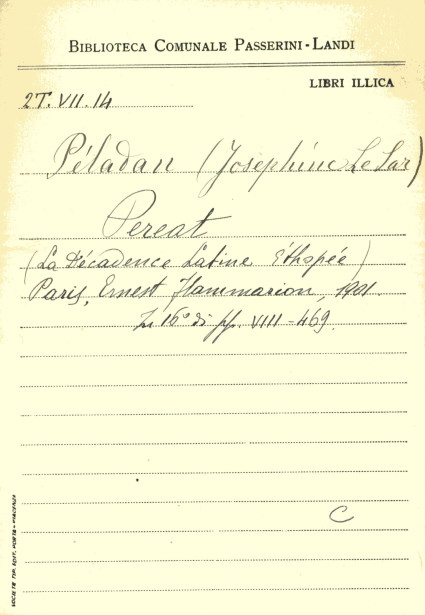 BIBLIOTECA COMUNALE PASSERINI-LANDI
LIBRI ILLICA
2T.VII.14
Péladan (Josephine Le Sar)
Pereat
(La Décadence Latine Éthopée)
Paris, Ernest Flammarion, 1901.
In 16° di pp. VIII-469.
C